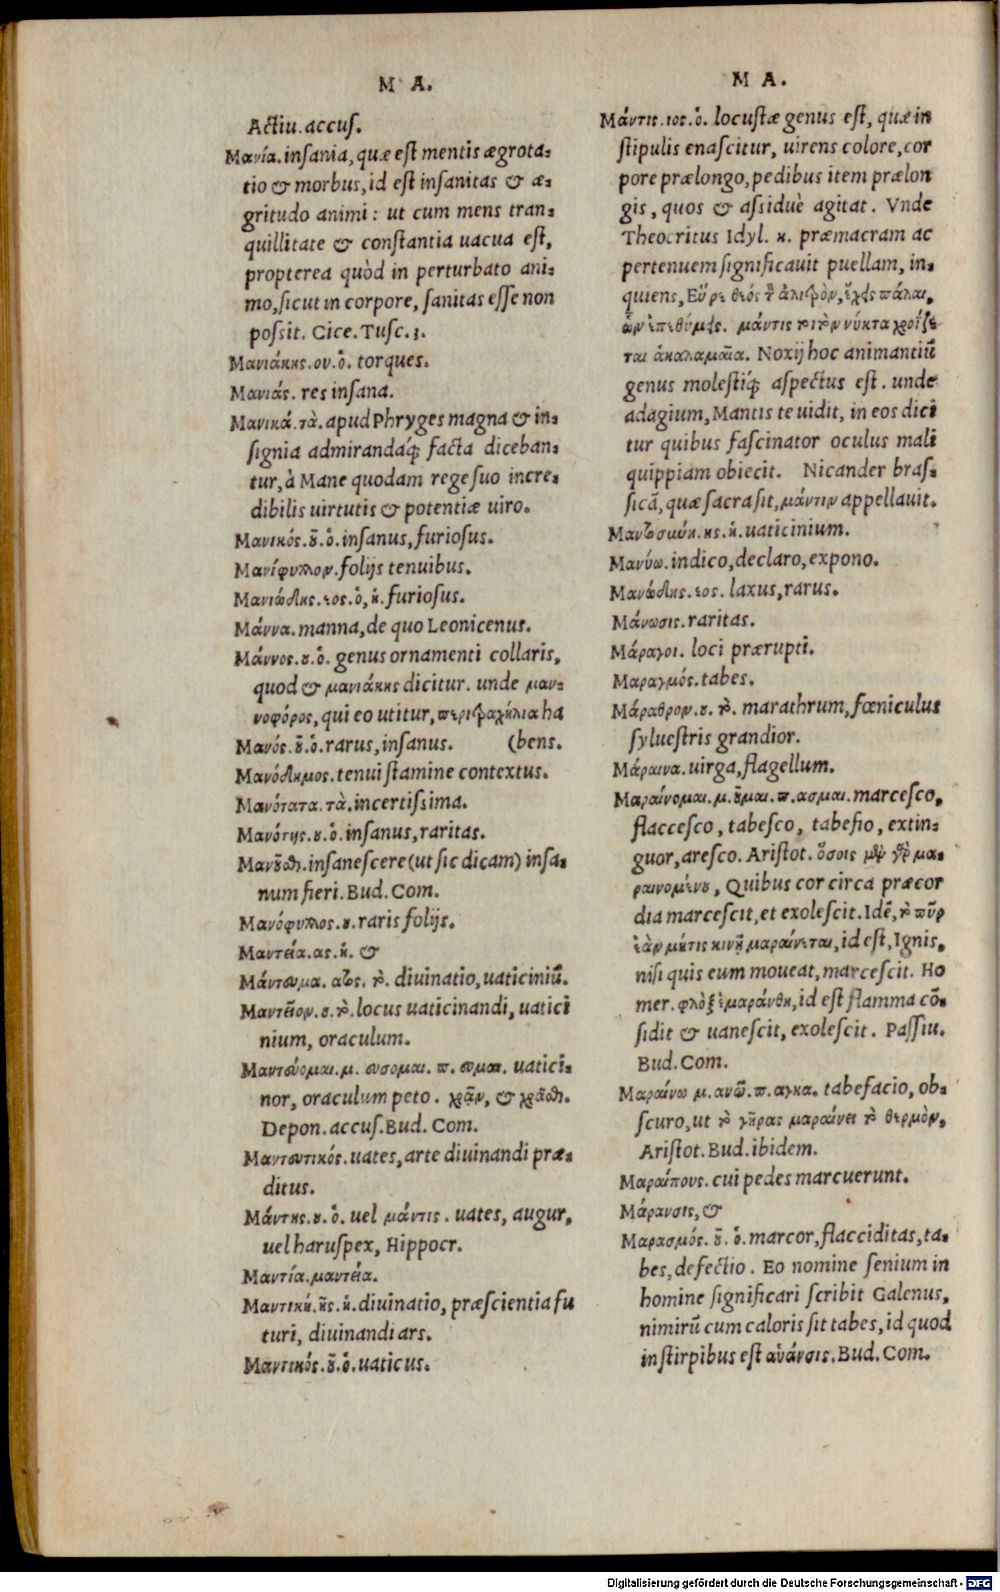 M A.
Actiu. accus.
Μανία. insania, quæ est mentis ægrota-
tio & morbus, id est insanitas & æ-
gritudo animi: ut cum mens tran-
quillitate & constantia uacua est,
propterea quòd in perturbato ani-
mo, sicut in corpore, sanitas esse non
possit. Cice. Tusc. 3.
Μανιάκης. ου. ὁ. torques.
Μανιάς. res insana.
Μανικά. τὰ. apud Phryges magna & in-
signia admirandaq́; facta diceban-
tur, à Mane quodam rege suo incre-
dibilis uirtutis & potentiæ uiro.
Μανικός. οῦ. ὁ. insanus, furiosus.
Μανίφυλλον. folijs tenuibus.
Μανιώδης. εος. ὁ, ἡ. furiosus.
Μάννα. manna, de quo Leonicenus.
Μάννος. ου. ὁ. genus ornamenti collaris,
quod & μανιάκης dicitur. unde μαν-
νοφόρος, qui eo utitur, περιτραχήλια ha
Μανός. οῦ. ὁ. rarus, insanus. (bens.
Μανόδημος. tenui stamine contextus.
Μανότατα. τὰ. incertissima.
Μανότης. ου. ὁ. insanus, raritas.
Μανοῦσθαι. insanescere (ut sic dicam) insa-
num fieri. Bud. Com.
Μανόφυλλος. ου. raris folijs.
Μαντεία. ας. ἡ. &
Μάντευμα. ατος. τὸ. diuinatio, uaticiniũ.
Μαντεῖον. ου. τὸ. locus uaticinandi, uatici
nium, oraculum.
Μαντεύομαι. μ. ευσομαι. π. ευμαι. uatici-
nor, oraculum peto. χρᾶν, & χρᾶσθαι.
Depon. accus. Bud. Com.
Μαντευτικός. uates, arte diuinandi præ-
ditus.
Μάντης. ου. ὁ. uel μάντις. uates, augur,
uel haruspex, Hippocr.
Μαντία. μαντεία.
Μαντική. ῆς. ἡ. diuinatio, præscientia fu
turi, diuinandi ars.
Μαντικός. οῦ. ὁ. uaticus.
M A.
Μάντις. ιος. ὁ. locustæ genus est, quæ in
stipulis enascitur, uirens colore, cor
pore prælongo, pedibus item prælon
gis, quos & assiduè agitat. Vnde
Theocritus Idyl. κ. præmacram ac
pertenuem significauit puellam, in-
quiens, Εὗρε θεός τὸν ἀλιτρὸν, ἔχεις πάλαι,
ὧν ἐπεθύμεις. μάντις τοι τὸν νύκτα χροΐξε
ται ἁ καλαμαῖα. Noxij hoc animantiũ
genus molestiq́; aspectus est. unde
adagium, Mantis te uidit, in eos dici
tur quibus fascinator oculus mali
quippiam obiecit. Nicander bras-
sicã, quæ sacra sit, μάντιν appellauit.
Μαντοσύνη. ης. ἡ. uaticinium.
Μανύω. indico, declaro, expono.
Μανώδης. εος. laxus, rarus.
Μάνωσις. raritas.
Μάραγοι. loci prærupti.
Μαραγμός. tabes.
Μάραθρον. ου. τὸ. marathrum, fœniculus
syluestris grandior.
Μάραινα. uirga, flagellum.
Μαραίνομαι. μ. οῦμαι. π. ασμαι. marcesco,
flaccesco, tabesco, tabefio, extin-
guor, aresco. Aristot. ὅσοις μὲν γὰρ μα-
ραινομένου, Quibus cor circa præcor
dia marcescit, et exolescit. Idẽ, τὸ πῦρ
ἐὰν μήτις κινῇ μαραίνεται, id est, Ignis,
nisi quis eum moueat, marcescit. Ho
mer. φλὸξ ἐμαράνθη, id est flamma cõ-
sidit & uanescit, exolescit. Passiu.
Bud. Com.
Μαραίνω μ. ανῶ. π. αγκα. tabefacio, ob-
scuro, ut τὸ γῆρας μαραίνει τὸ θερμὸν,
Aristot. Bud. ibidem.
Μαραίπους. cui pedes marcuerunt.
Μάρανσις, &
Μαρασμός. οῦ. ὁ. marcor, flacciditas, ta-
bes, defectio. Eo nomine senium in
homine significari scribit Galenus,
nimirũ cum caloris sit tabes, id quod
in stirpibus est αὐάνσις. Bud. Com.
Digitalisierung gefördert durch die Deutsche Forschungsgemeinschaft - DFG